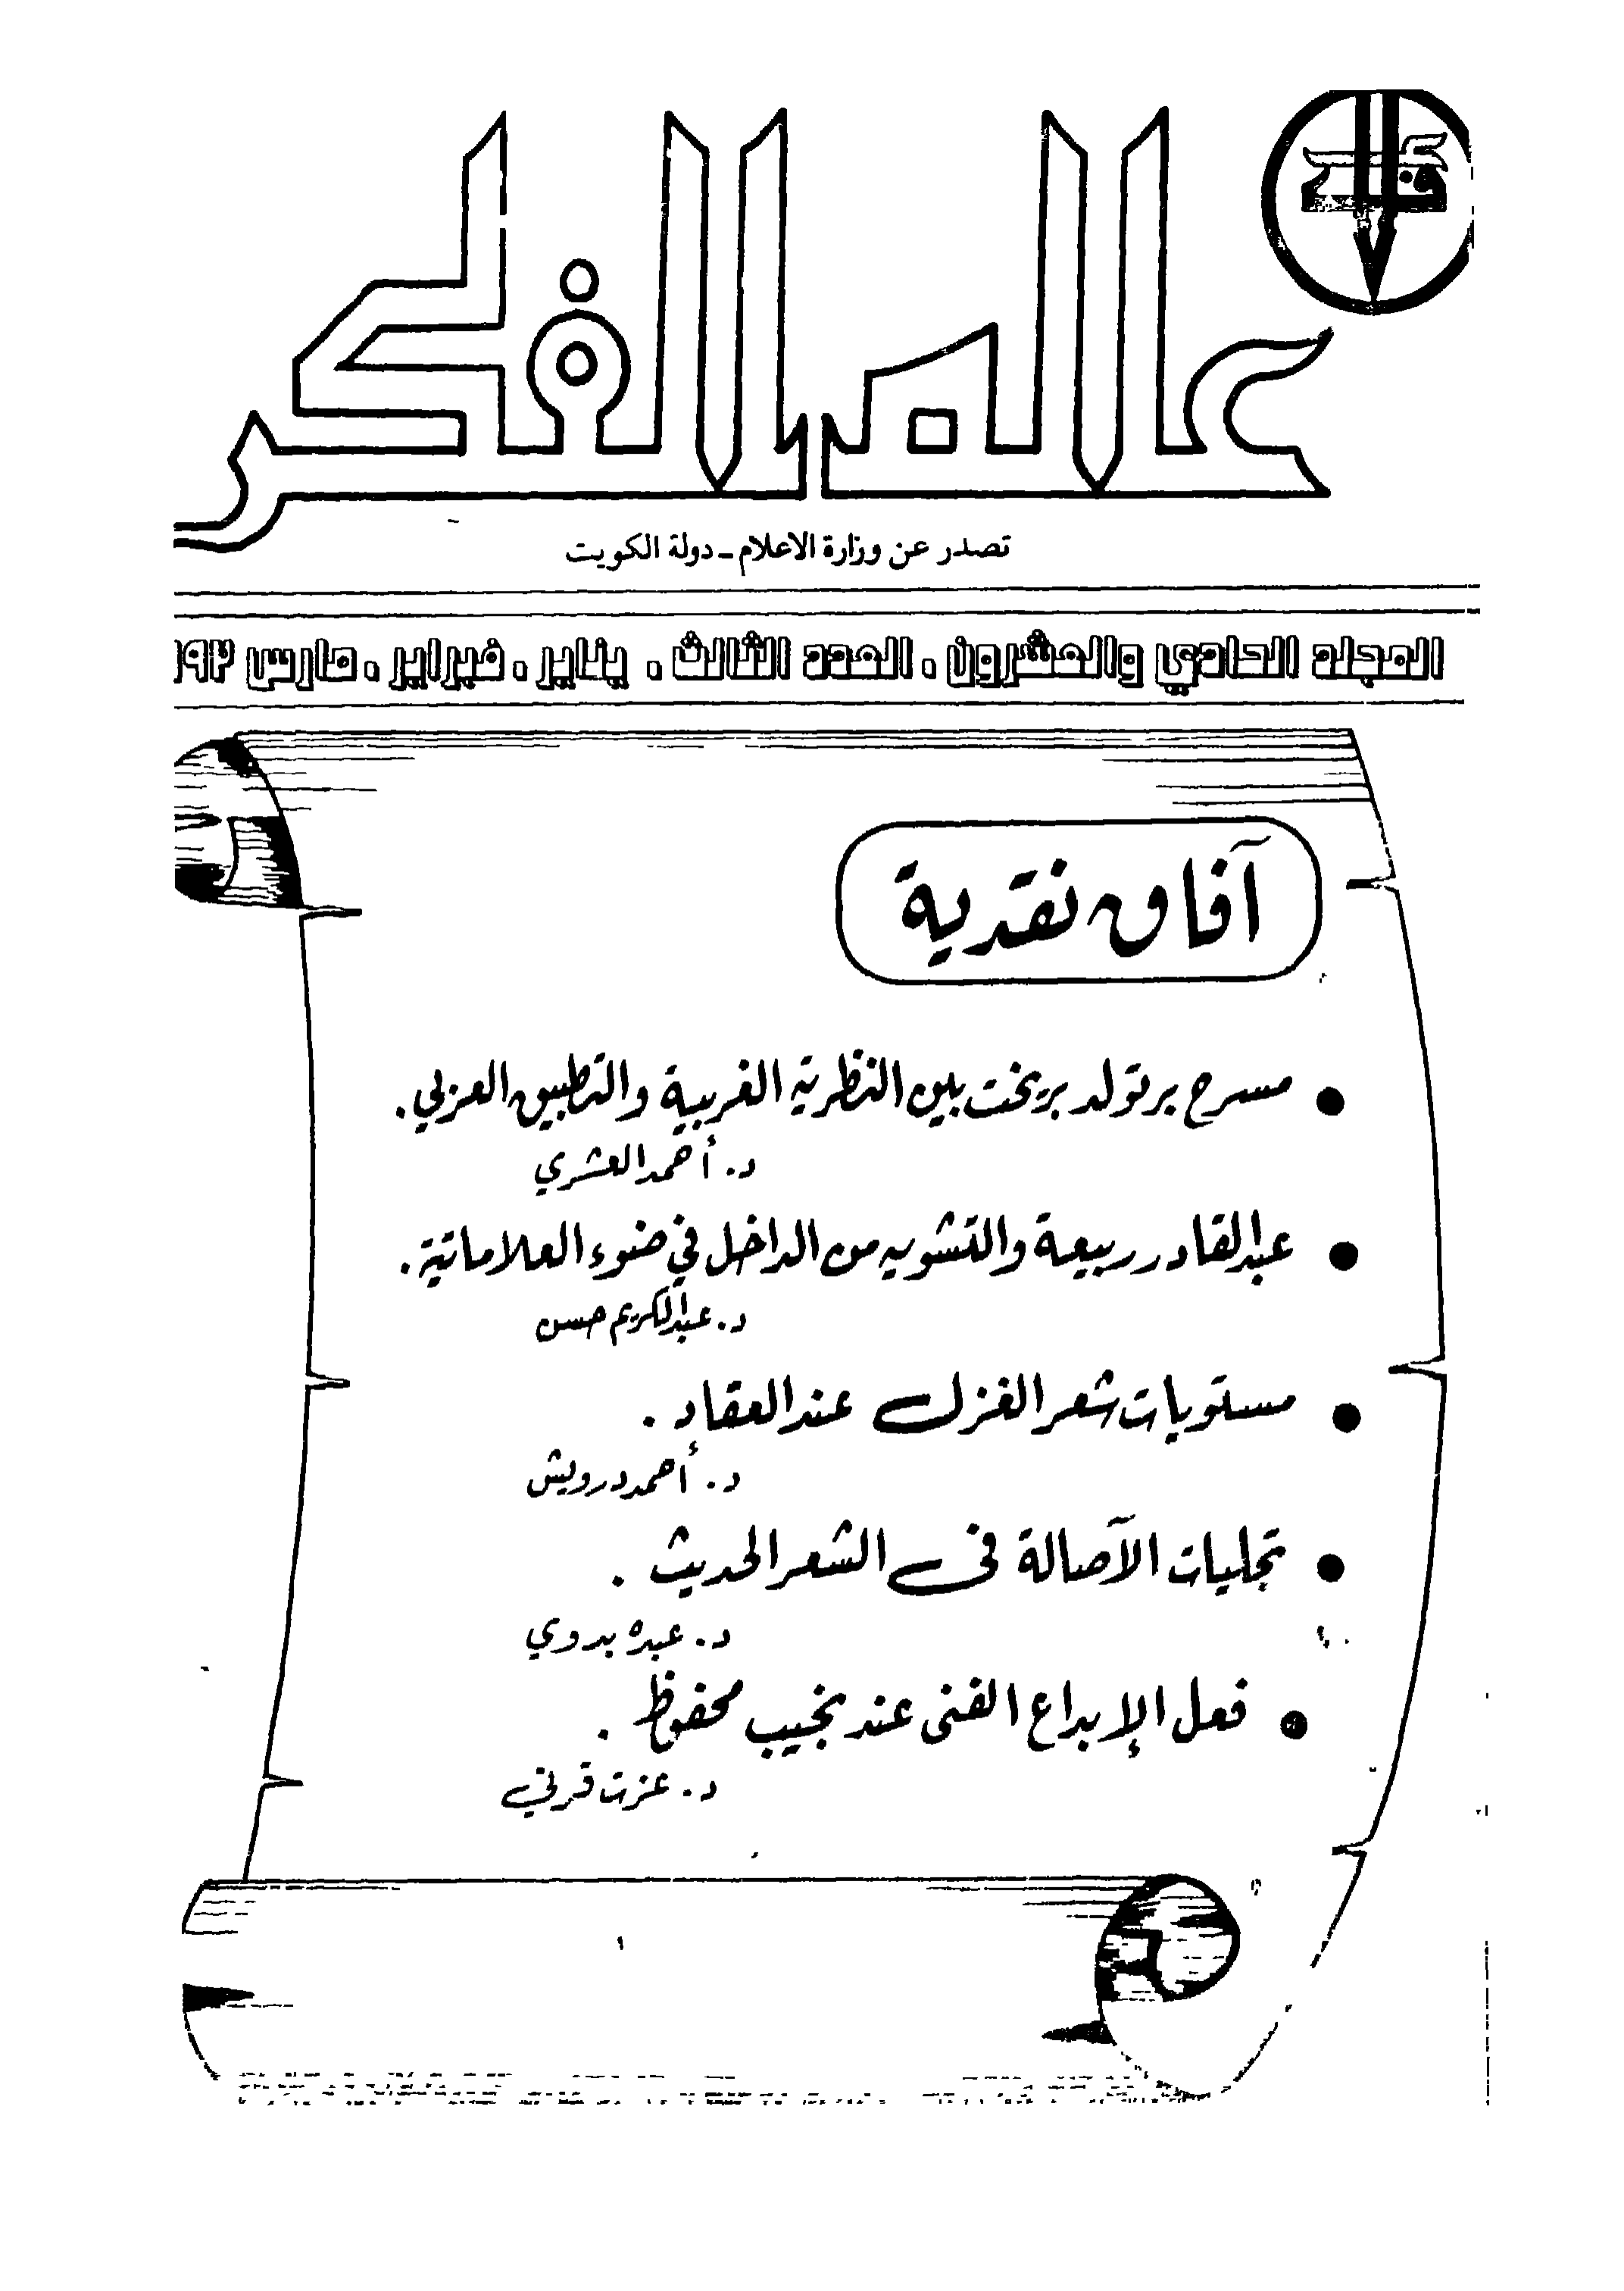 عالم الفكر
تصدر عن وزارة الاعلام - دولة الكويت
المجلد الحادي والعشرون . العدد الثالث . يناير . فبراير . مارس ١٩٩٢
آفاق نقدية
● مسرح برتولد بريخت بين النظرية الغربية والتطبيق العربي .
د. أحمد العشري
● عبدالقادر ربيعة والتشويه من الداخل في ضوء العلاماتية .
د. عبدالكريم حسن
● مستويات شعر الغزل عند العقاد .
د. أحمد درويش
● تجليات الآصالة في الشعر الحديث .
د. عبده بدوي
● فعل الإبداع الفنى عند نجيب محفوظ .
د. عزت قرني